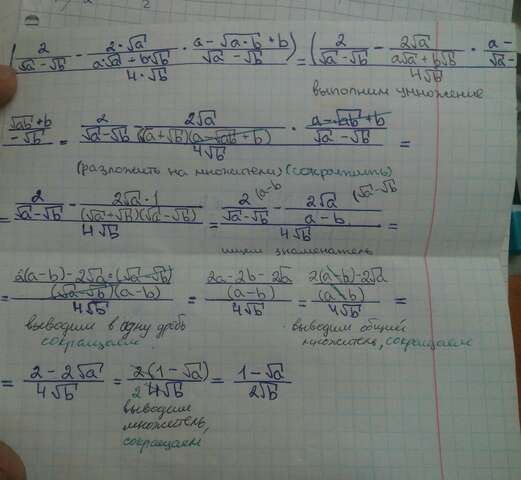 (2/(√a-√b) - (2·√a)/(a·√a+b·√b) · (a-√(a·b)+b)/(√a-√b))/(4·√b) = (2/(√a-√b) - (2√a)/(a√a+b√b) · (a-
выполним умножение
√ab+b/-√b = (2/(√a-√b) - (2√a)/((√a+√b)(a-√ab+b)) · (a-√ab+b)/(√a-√b))/(4√b) =
(разложить на множители) (сократить)
= (2/(√a-√b) - (2√a·1)/((√a+√b)(√a-√b)))/(4√b) = (2/(√a-√b) (a-b - 2√a/(a-b) (√a-√b)/(4√b) =
ищем знаменатель
= (2(a-b)-2√a·(√a-√b))/((√a-√b)(a-b))/(4√b) = (2a-2b-2√a)/(a-b)/(4√b) = (2(a-b)-2√a)/(a-b)/(4√b) =
выводим в одну дробь выводим общий
сокращаем множитель, сокращаем
= (2-2√a)/(4√b) = (2(1-√a))/(2 4√b) = (1-√a)/(2√b)
выводим
множитель,
сокращаем